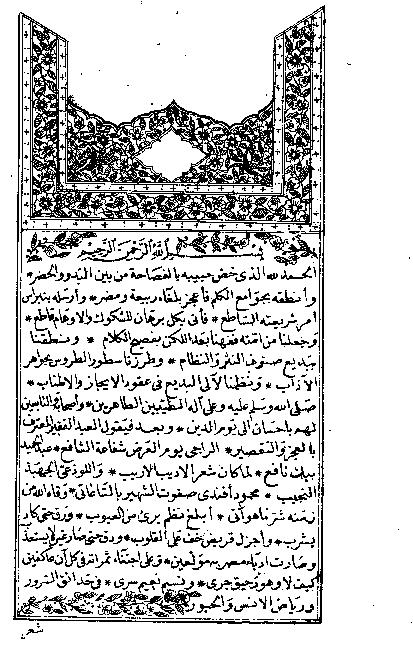 بسم الله الرحمن الرحيم
الحمد لله الذى خص حبيبه بالفصاحة من بين البدو والحضر *
وأنطقه بجوامع الكلم فأعجز بلغاء ربيعة ومضر * وأرسله بنبراس
أمر شريعته الساطع * فأتى بكل برهان للشكوك والاوهام قاطع *
وجعلنا من أمته ففهنا بعد اللكن بفصيح الكلام * ومنطقنا
ببديع صنوف النثر والنظام * وطرزنا سطور الطروس بجواهر
الآداب * ونظمنا لآلى البديع فى عقود الايجاز والاطناب *
صلى الله وسلم عليه وعلى آله الطيبين الطاهرين * وأصحابه والتابعين
لهم باحسان الى يوم الدين * وبعد فيقول العبد الفقير المعترف
بالعجز والتقصير * الراجى يوم العرض شفاعة الشافع * عبد الحميد
بيك نافع * لما كان شعر الاديب الاريب * واللوذعى الجهبذ
النجيب * محمود أفندى صفوت الشهير بالساعاتى * وقاه الله من
زمنه شر ما هو آتى * أبلغ نظم برئ من العيوب * ورق حتى كاد
يشرب * وأجزل قريض خف على القلوب * ودق حتى صار
وصارت أدباء مصر به مولعين * وعلى اجتناء ثمراته فى كل آن عاكفين
كيف لا وهو رحيق جرى * ونسيم نعيم سرى * فى حدائق السرور
ورياض الانس والحبور
شعر